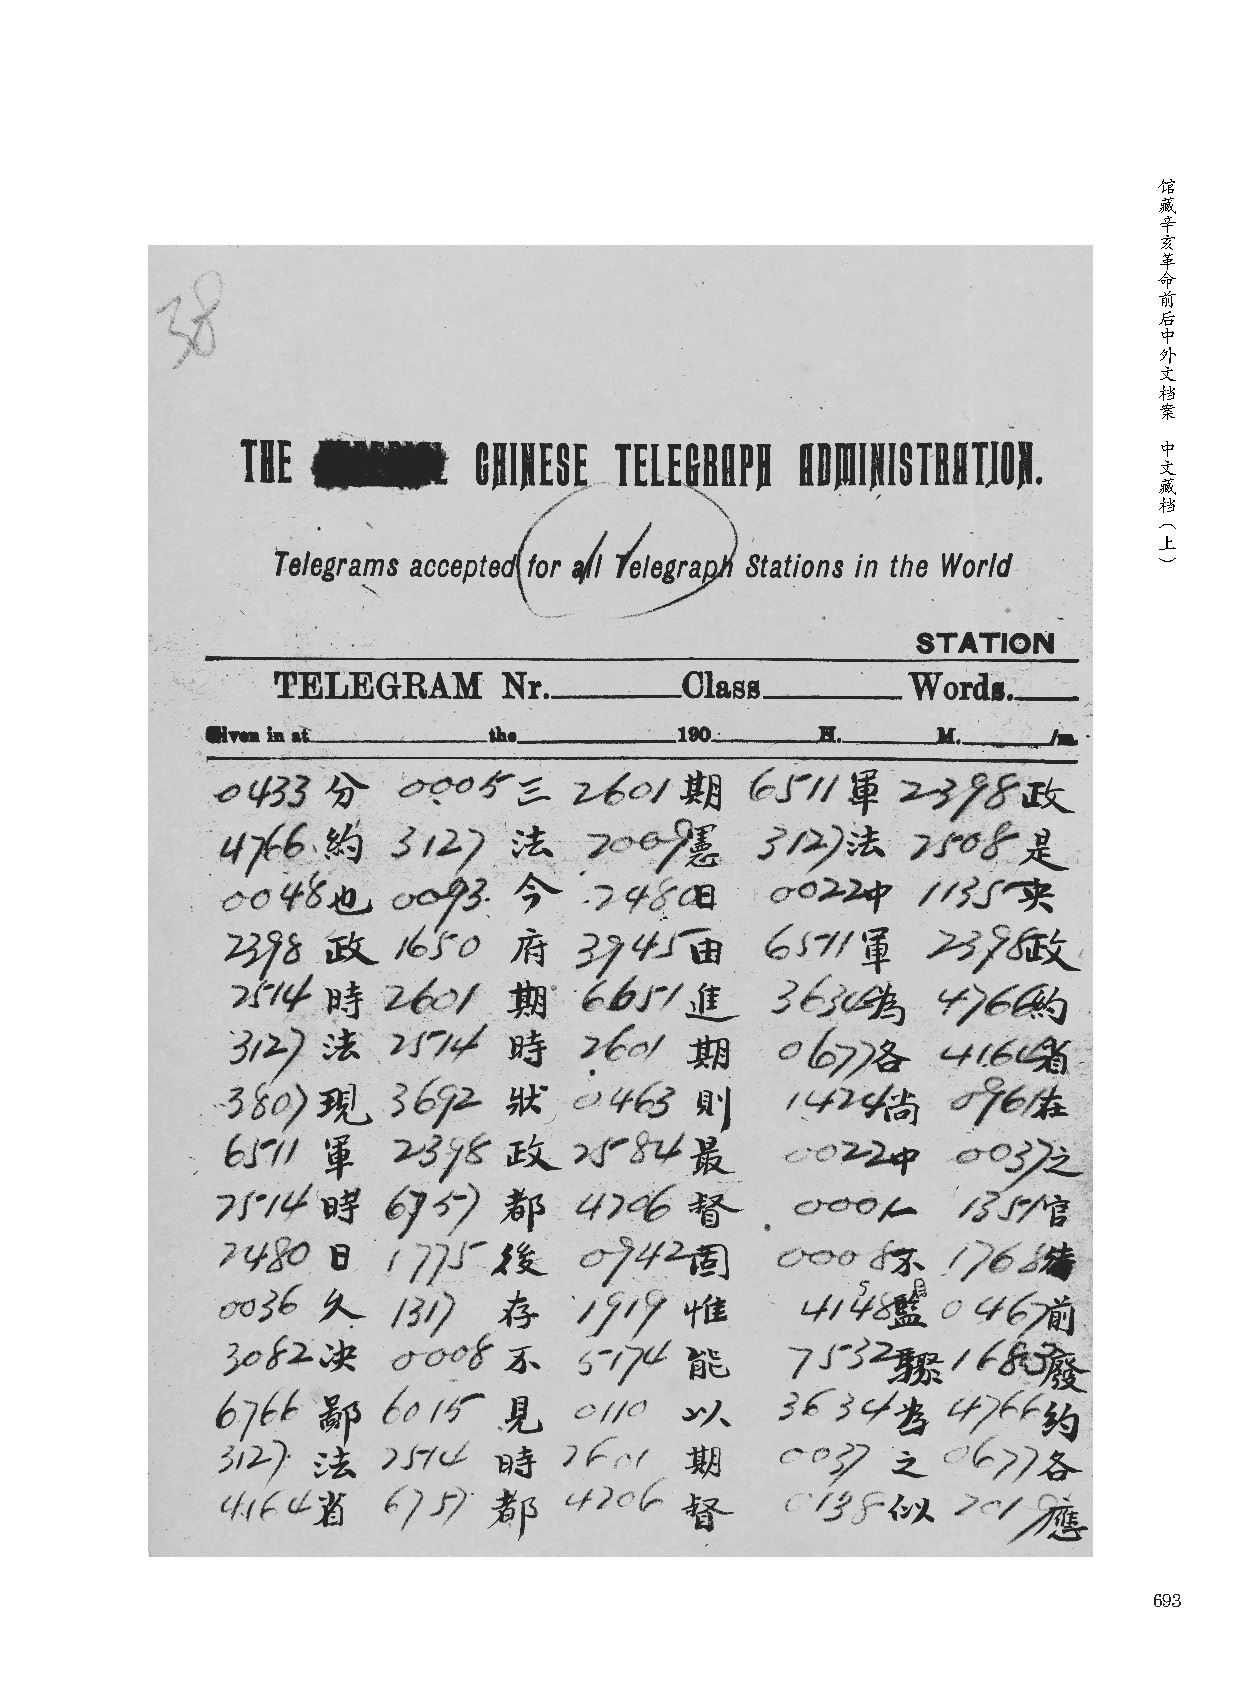 馆藏辛亥革命前后中外文档案 中文藏档（上）
38
THE CHINESE TELEGRAPH ADMINISTRATION.
11
Telegrams accepted for all Telegraph Stations in the World
STATION
TELEGRAM Nr. Class Words.
Given in at the 190 H. M. /m.
0433 分 0005 三 2601 期 6511 軍 2398 政
4766 約 3127 法 2009 憲 3127 法 2508 是
0048 也 0093 今 2480 日 0022 中 1135 央
2398 政 1650 府 3945 由 6511 軍 2398 政
2514 時 2601 期 6651 進 3634 為 4766 約
3127 法 2514 時 2601 期 0677 各 4164 省
3807 現 3692 狀 0463 則 1424 尚 0961 在
6511 軍 2398 政 2584 最 0022 中 0037 之
2514 時 6757 都 4206 督 0001 一 1351 官
2480 日 1775 後 0942 固 0008 不 1768
0036 久 1317 存 1919 惟 4148 監 0467 前
3082 决 0008 不 5174 能 7532 驟 1683 廢
6766 鄙 6015 見 0110 以 3634 為 4766 約
3127 法 2514 時 2601 期 0037 之 0677 各
4164 省 6757 都 4206 督 0138 似 2019 應
693